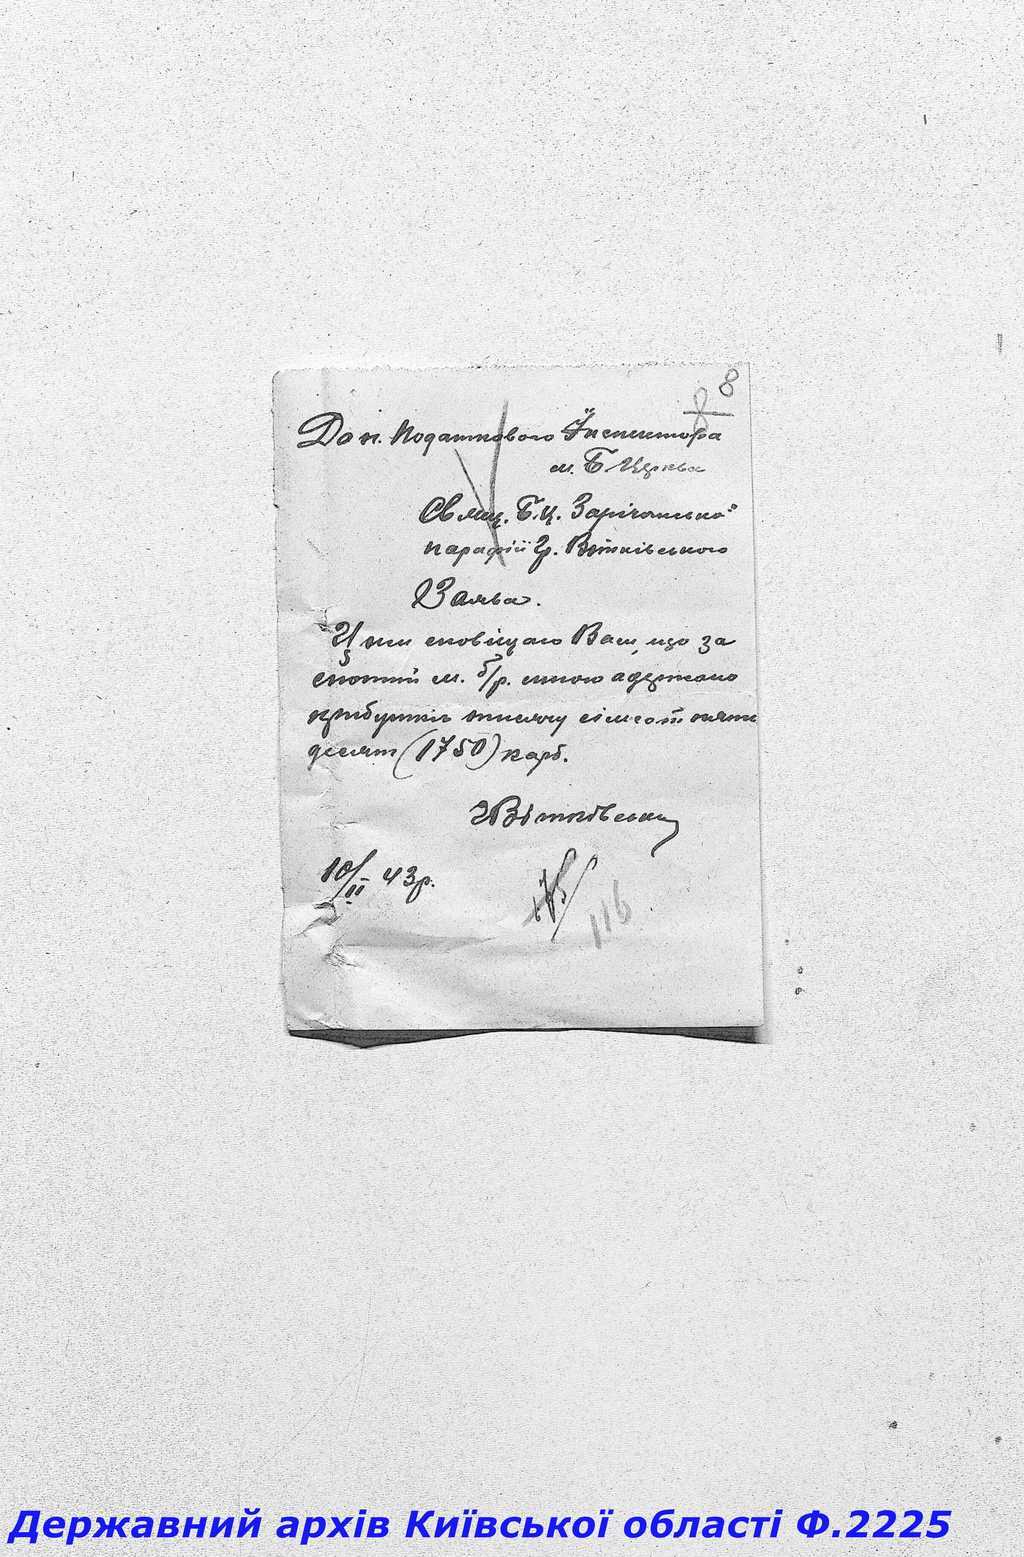 8
8
До п. Податкового Інспектора
м. Б Церква
Свящ. Б.Ц. Зарічанської
парафії Г. Вітківського
Заява.
Цим сповіщаю Вас, що за
січний м. б/р. мною адержано
прибутків тисячу сімсот пять
десят (1750) карб.
Г Вітківський
10/II 43р.
175
116
Державний архів Київської області Ф.2225